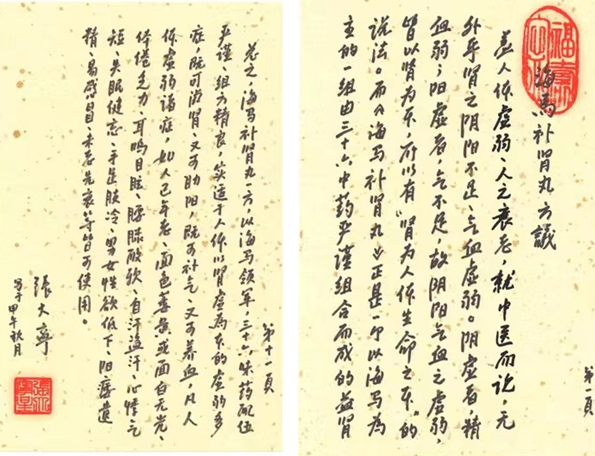 第一頁
海馬补肾丸方議
盖人体虚弱、人之衰老、就中医而论、无
外乎肾之阴阳不足、气血虚弱。阴虚者、精
血弱；阳虚者，气不足，故阴阳气血之虚弱，
皆以肾为本，所以有“肾为人体生命之本”的
说法。而《海马补肾丸》正是一个以海马为
主的一组由三十六中药严谨组合而成的益肾
第十一頁
总之、海马补肾丸一方，以海马领军，三十六味药配伍
严谨、组方精良，实适于人体以肾虚為本的虚弱多
症，既可滋肾、又可助阳，既可补气、又可养血，凡人
体虚弱诸症，如人已年老、面色萎黄或面白无光、
体倦乏力、耳鸣目眩、腰膝酸软、自汗盗汗、心悸气
短、失眠健忘、手足肤冷、男女性欲低下、阳痿遗
精、易感冒、未老先衰等皆可使用。
張大寧
写于甲午秋月